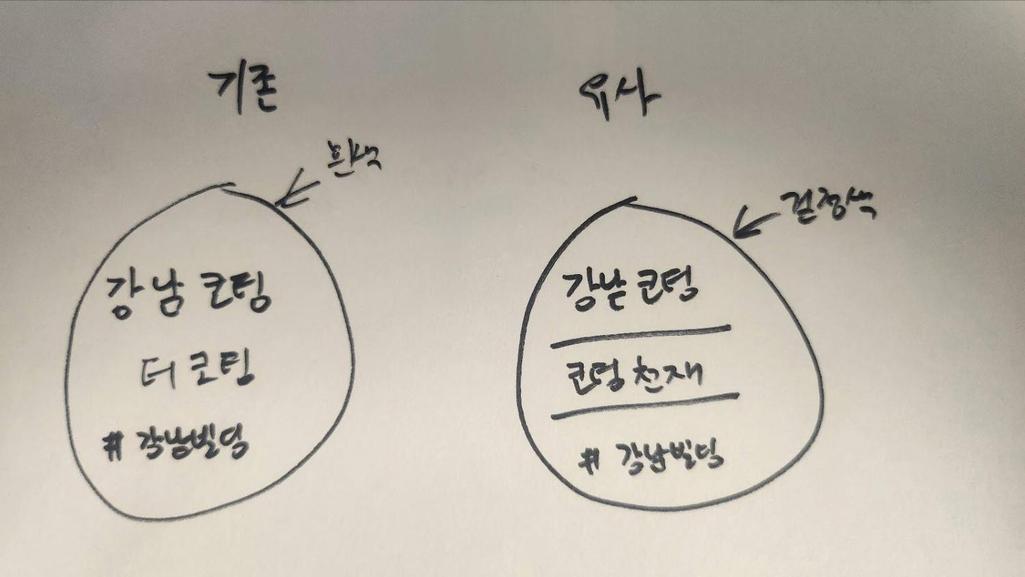 기존
유사
흰색
검정색
강남코팅
더코팅
# 강남빌딩
강남코팅
코팅천재
# 강남빌딩